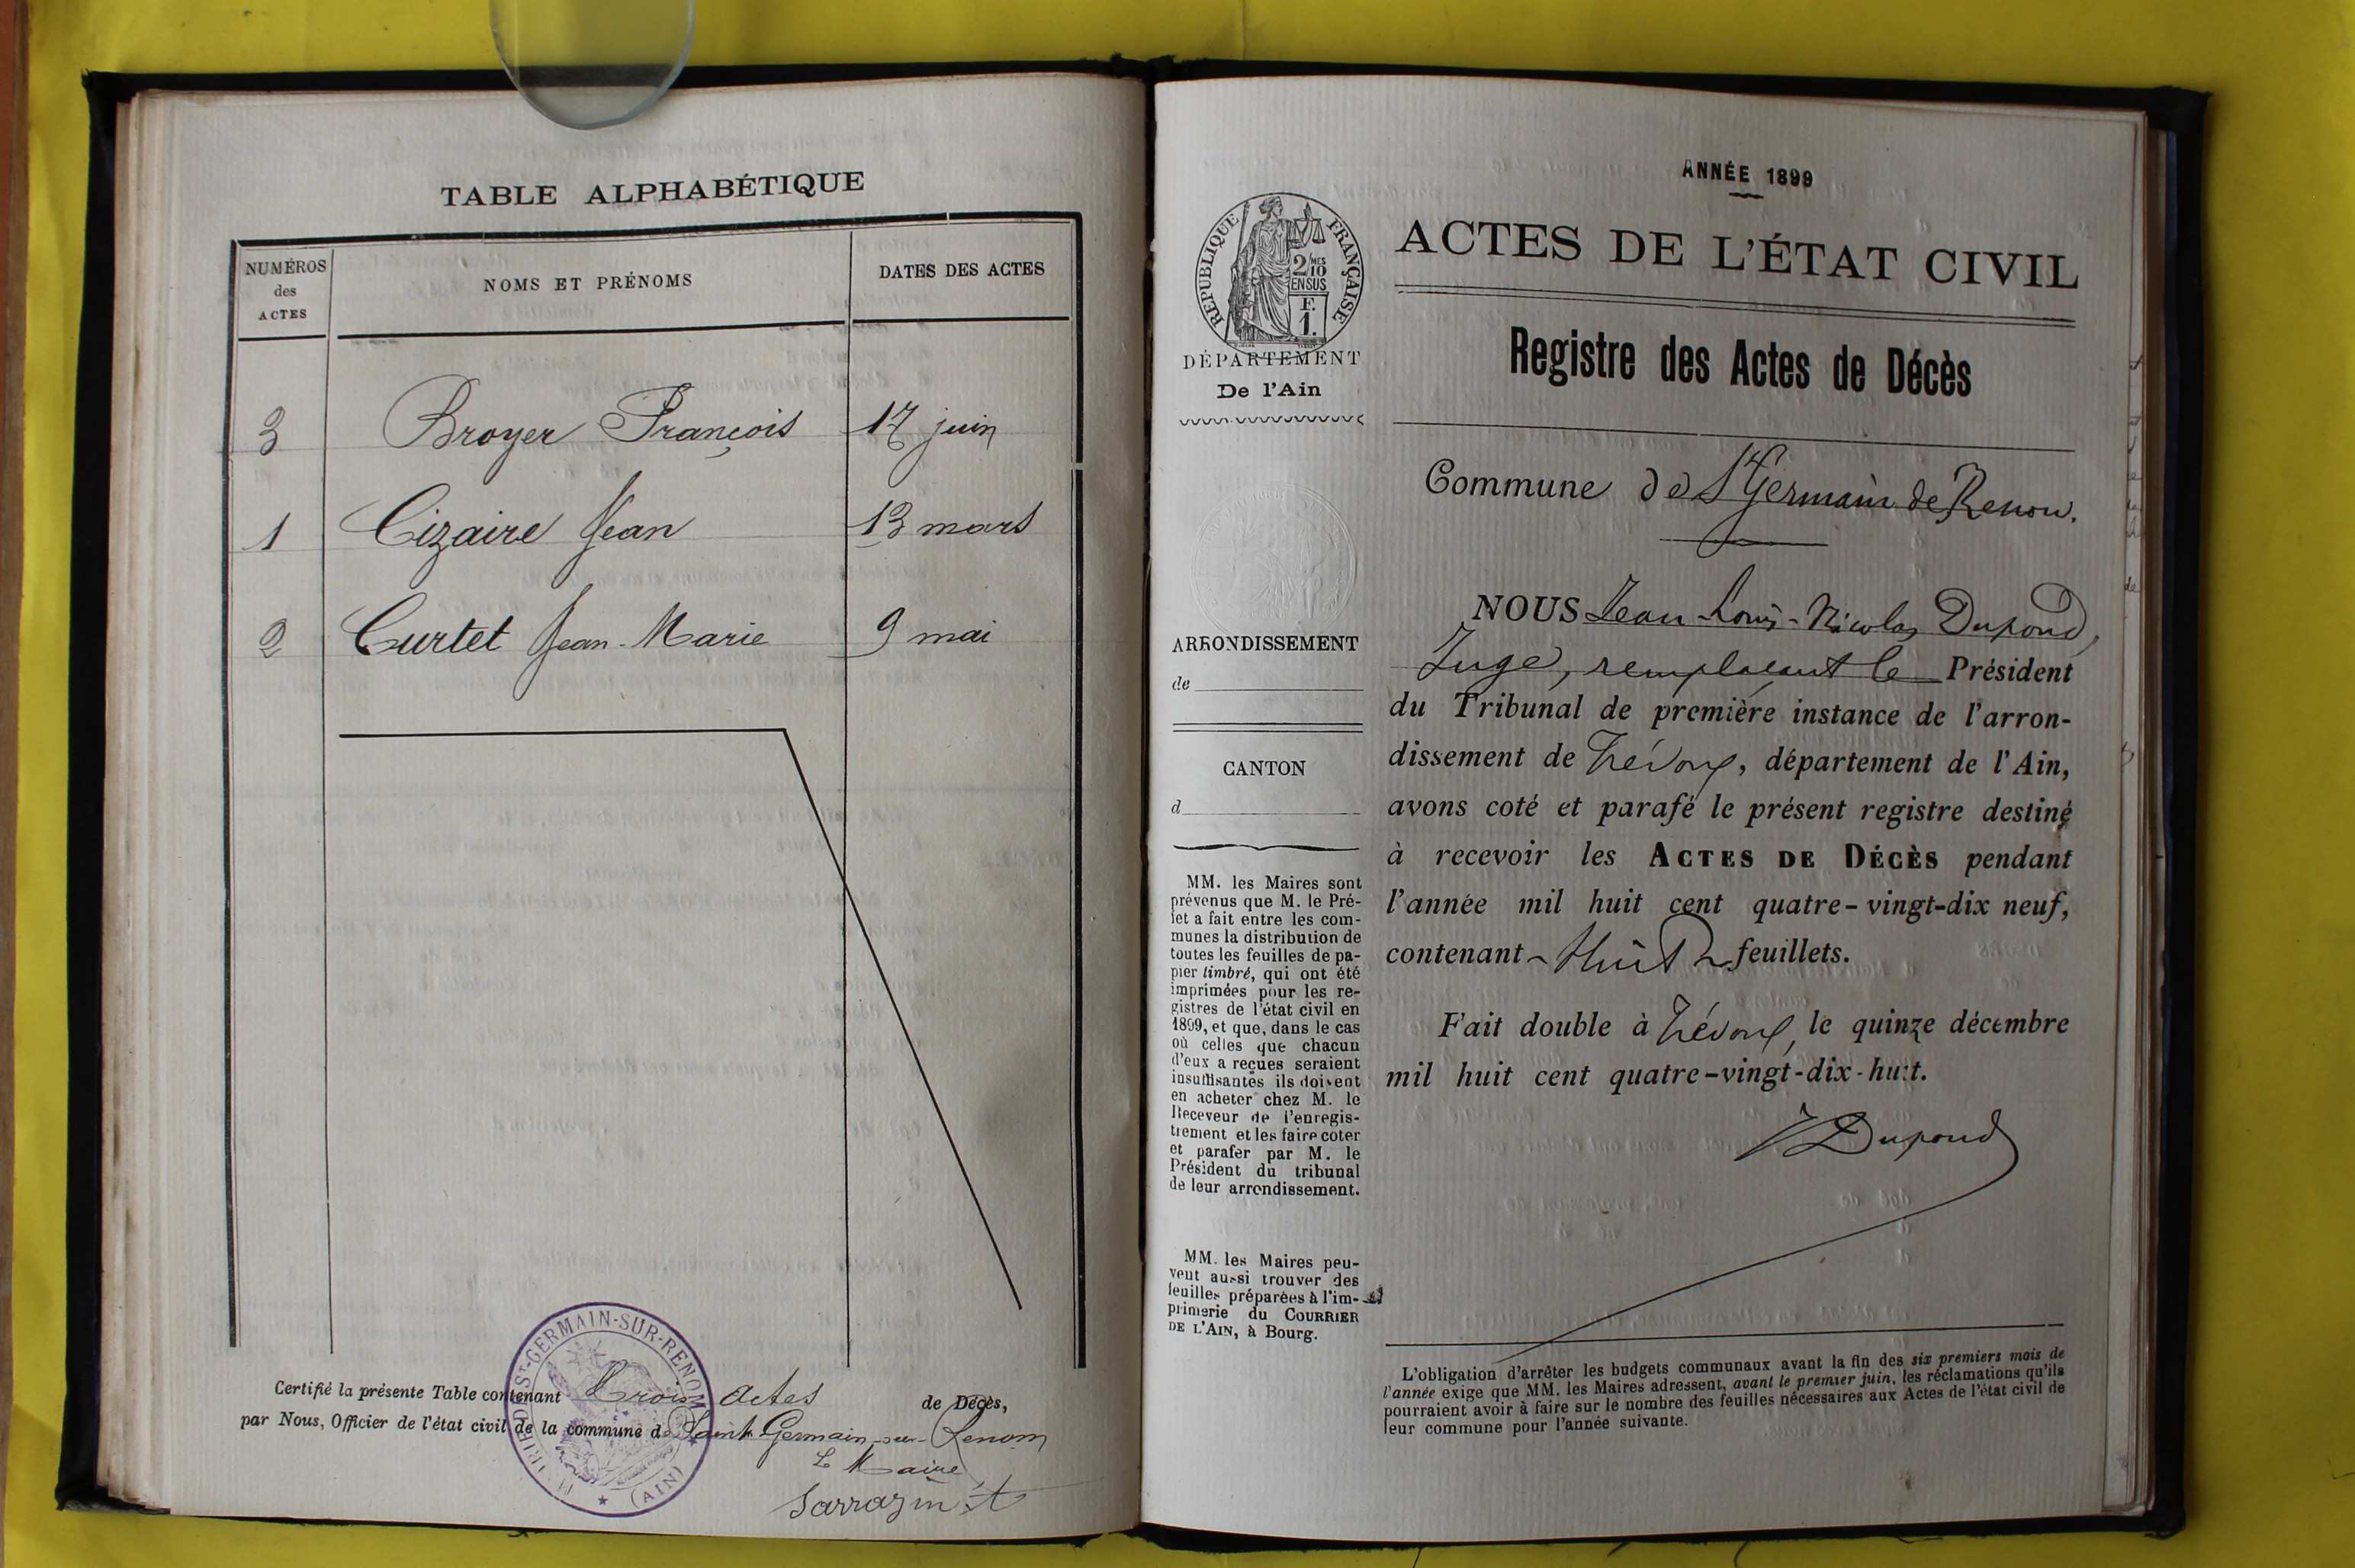 TABLE ALPHABÉTIQUE
NUMÉROS
des
ACTES
NOMS ET PRÉNOMS
DATES DES ACTES
3 Broyer François 17 juin
1 Cizaire Jean 13 mars
2 Curtet Jean-Marie 9 mai
Certifié la présente Table contenant Trois actes de Décès,
par Nous, Officier de l'état civil de la commune de Saint Germain-sur-Renom
Le Maire
Sarrazin
MAIRIE DE ST-GERMAIN-SUR-RENOM
(AIN)
ANNÉE 1899
RÉPUBLIQUE FRANÇAISE
2 MES
10
EN SUS
F.
1.
DÉPARTEMENT
De l'Ain
ARRONDISSEMENT
de
CANTON
d
MM. les Maires sont
prévenus que M. le Pré-
fet a fait entre les com-
munes la distribution de
toutes les feuilles de pa-
pier timbré, qui ont été
imprimées pour les re-
gistres de l'état civil en
1899, et que, dans le cas
où celles que chacun
d'eux a reçues seraient
insuffisantes ils doivent
en acheter chez M. le
Receveur de l'enregis-
trement et les faire coter
et parafer par M. le
Président du tribunal
de leur arrondissement.
MM. les Maires peu-
vent aussi trouver des
feuilles préparées à l'im-
primerie du COURRIER
DE L'AIN, à Bourg.
ACTES DE L'ÉTAT CIVIL
Registre des Actes de Décès
Commune de St Germain de Renon.
NOUS Jean-Louis-Nicolas Dupond,
Juge, remplaçant le Président
du Tribunal de première instance de l'arron-
dissement de Trévoux, département de l'Ain,
avons coté et parafé le présent registre destiné
à recevoir les ACTES DE DÉCÈS pendant
l'année mil huit cent quatre-vingt-dix neuf,
contenant Huit feuillets.
Fait double à Trévoux, le quinze décembre
mil huit cent quatre-vingt-dix-huit.
JDupond
L'obligation d'arrêter les budgets communaux avant la fin des six premiers mois de
l'année exige que MM. les Maires adressent, avant le premier juin, les réclamations qu'ils
pourraient avoir à faire sur le nombre des feuilles nécessaires aux Actes de l'état civil de
leur commune pour l'année suivante.